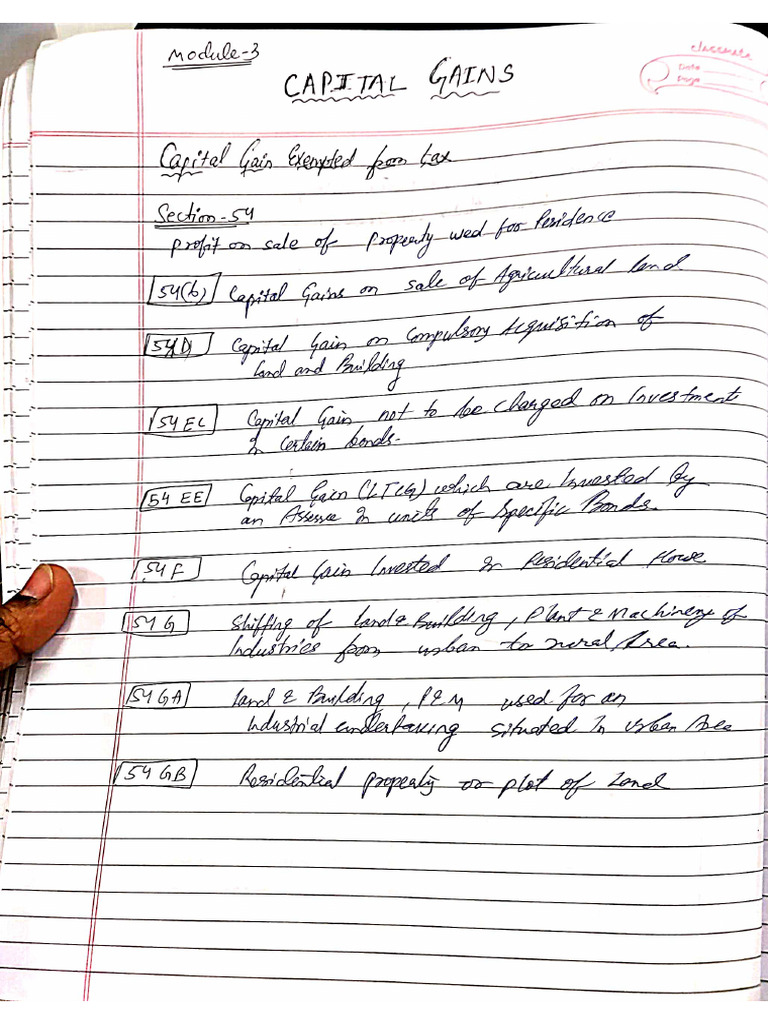 Module-3
classmate
Date
Page
CAPITAL GAINS
Capital Gain Exempted from tax
Section-54
Profit on sale of Property used for Residence
54(b) Capital Gains on sale of Agricultural land
54(D) Capital Gain on Compulsory Acquisition of
land and Building
54 EC Capital Gain not to be charged on Investment
in certain bonds.
54 EE Capital Gain (LTCG) which are Invested by
an Assesse in units of Specific Bonds.
54 F Capital Gain Invested in Residential House
54 G Shiffing of land & Building, Plant & Machinery of
Industries from urban to rural Area.
54 GA Land & Building, P&M used for an
Industrial undertaking situated In Urban Area
54 GB Residential property or plot of Land